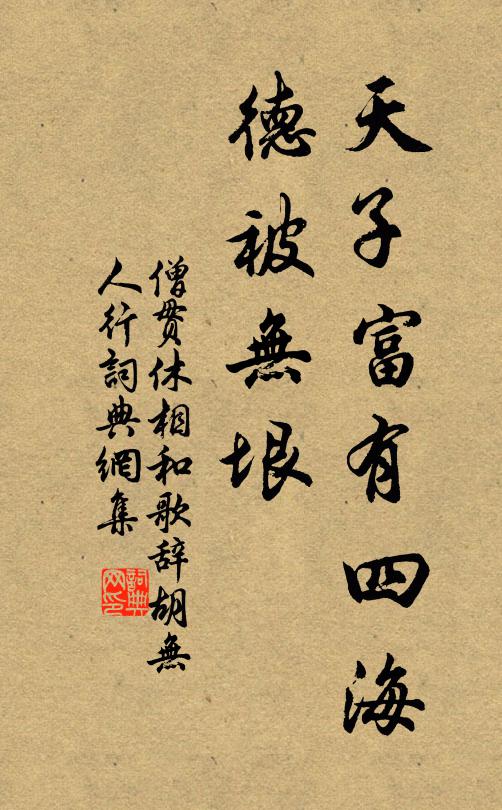 天子富有四海
德被無垠
僧貫休相和歌辞胡無
人行詞典網集
詞典
网印